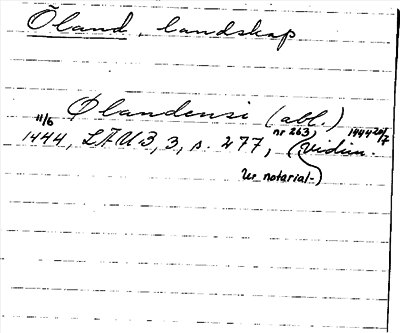 Öland, landskap
Ølandensi (abl.)
11/6 1444, LAUB, 3, s. 277, nr 263, (Vidim. 1444 20/7
ur notarial-)